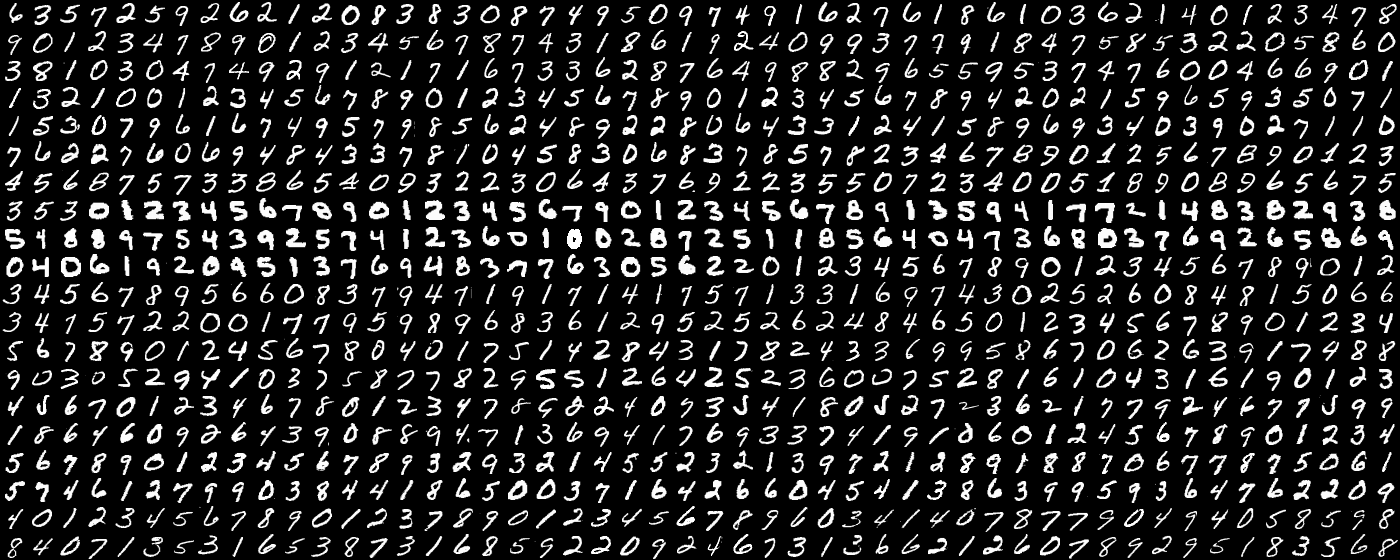 6 3 5 7 2 5 9 2 6 2 1 2 0 8 3 8 3 0 8 7 4 9 5 0 9 7 4 9 1 6 2 7 6 1 8 6 1 0 3 6 2 1 4 0 1 2 3 4 7 8
9 0 1 2 3 4 7 8 9 0 1 2 3 4 5 6 7 8 7 4 3 1 8 6 1 9 2 4 0 9 9 3 7 7 9 1 8 4 7 5 8 5 3 2 2 0 5 8 6 0
3 8 1 0 3 0 4 7 4 9 2 9 1 2 1 7 1 6 7 3 3 6 2 8 7 6 4 9 8 8 2 9 6 5 5 9 5 3 7 4 7 6 0 0 4 6 6 9 0 1
1 3 2 1 0 0 1 2 3 4 5 6 7 8 9 0 1 2 3 4 5 6 7 8 9 0 1 2 3 4 5 6 7 8 9 4 2 0 2 1 5 9 6 5 9 3 5 0 7 1
1 5 3 0 7 9 6 1 6 7 4 9 5 7 9 8 5 6 2 4 8 9 2 2 8 0 6 4 3 3 1 2 4 1 5 8 9 6 9 3 4 0 3 9 0 2 7 1 1 0
7 6 2 2 7 6 0 6 9 4 8 4 3 3 7 8 1 0 4 5 8 3 0 6 8 3 7 8 5 7 8 2 3 4 6 7 8 9 0 1 2 5 6 7 8 9 0 1 2 3
4 5 6 8 7 5 7 3 3 8 6 5 4 0 9 3 2 2 3 0 6 4 3 7 6 9 2 2 3 5 5 0 7 2 3 4 0 0 5 1 8 9 0 8 9 6 5 6 7 5
3 5 3 0 1 2 3 4 5 6 7 8 9 0 1 2 3 4 5 6 7 9 0 1 2 3 4 5 6 7 8 9 1 3 5 9 4 1 7 7 2 1 4 8 3 8 2 9 3 8
5 4 8 8 9 7 5 4 3 9 2 5 7 4 1 2 3 6 0 1 0 0 2 8 7 2 5 1 1 8 5 6 4 0 4 7 3 6 8 0 3 7 6 9 2 6 5 8 6 9
0 4 0 6 1 9 2 0 9 5 1 3 7 6 9 4 8 3 7 7 6 3 0 5 6 2 2 0 1 2 3 4 5 6 7 8 9 0 1 2 3 4 5 6 7 8 9 0 1 2
3 4 5 6 7 8 9 5 6 6 0 8 3 7 9 4 7 1 9 1 7 1 4 1 7 5 7 1 3 3 1 6 9 7 4 3 0 2 5 2 6 0 8 4 8 1 5 0 6 6
3 4 7 5 7 2 2 0 0 1 7 7 9 5 9 8 9 6 8 3 6 1 2 9 5 2 5 2 6 2 4 8 4 6 5 0 1 2 3 4 5 6 7 8 9 0 1 2 3 4
5 6 7 8 9 0 1 2 4 5 6 7 8 0 4 0 1 7 5 1 4 2 8 4 3 1 7 8 2 4 3 3 6 9 9 5 8 6 7 0 6 2 6 3 9 1 7 4 8 8
9 0 3 0 5 2 9 4 1 0 3 7 5 8 7 7 8 2 9 5 5 1 2 6 4 2 5 2 3 6 0 0 7 5 2 8 1 6 1 0 4 3 1 6 1 9 0 1 2 3
4 5 6 7 0 1 2 3 4 6 7 8 0 1 2 3 4 7 8 9 8 2 4 0 7 3 5 4 1 8 0 5 2 7 2 3 6 2 1 7 7 9 2 4 6 7 7 5 9 9
1 8 6 4 6 0 9 2 6 4 3 9 0 8 8 9 4 7 1 3 6 9 4 1 7 6 9 3 3 7 4 1 9 1 0 6 0 1 2 4 5 6 7 8 9 0 1 2 3 4
5 6 7 8 9 0 1 2 3 4 5 6 7 8 9 3 2 9 3 2 1 4 5 5 2 3 2 1 3 9 7 2 1 2 8 9 1 8 8 7 0 6 7 7 8 7 5 0 6 1
5 7 4 6 1 2 7 9 9 0 3 8 4 4 1 8 6 5 0 0 3 7 1 6 4 2 6 6 0 4 5 4 1 3 8 6 3 9 9 5 9 3 6 4 7 6 2 2 0 9
4 0 1 2 3 4 5 6 7 8 9 0 1 2 3 7 8 9 0 1 2 3 4 5 6 7 8 9 6 0 3 4 1 4 0 7 8 7 7 9 0 4 9 4 0 5 8 5 9 8
8 4 0 7 1 3 5 3 1 6 5 3 8 7 3 1 6 8 5 9 2 2 0 9 2 4 6 7 3 1 3 6 6 2 1 2 6 0 7 8 9 2 9 5 1 8 3 5 6 8